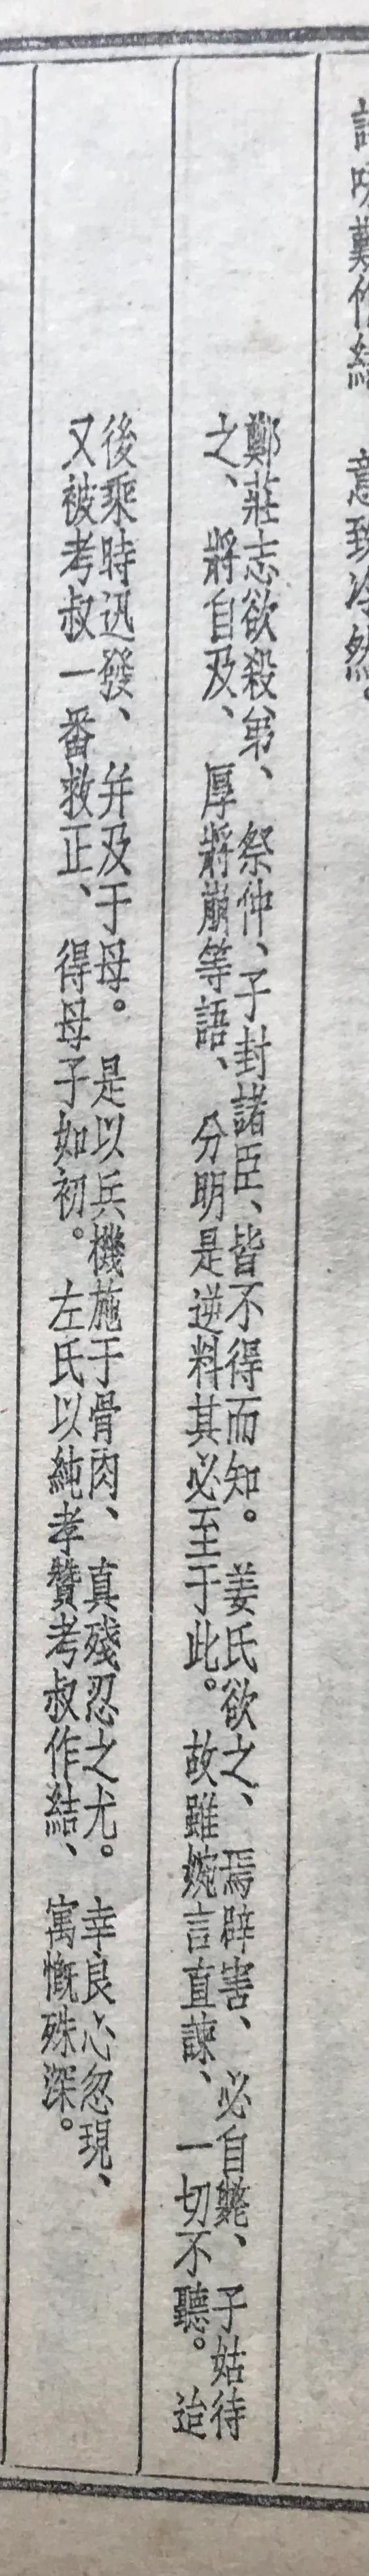 意致冷然。
鄭莊志欲殺弟、祭仲、子封諸臣、皆不得而知。姜氏欲之、焉辟害、必自斃、子姑待
之、將自及、厚將崩等語、分明是逆料其必至于此。故雖婉言直諫、一切不聽。迨
後乘時迅發、并及于母。是以兵機施于骨肉、真殘忍之尤。幸良心忽現、
又被考叔一番救正、得母子如初。左氏以純孝贊考叔作結、寓慨殊深。